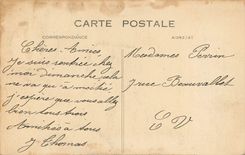 CARTE POSTALE
CORRESPONDANCE
ADRESSE
Chères Amies
Je suis rentrée chez
moi dimanche cela
ne va qu'a moitié
j'espère que vous allez
bien tous trois
Amitiés a tous
J Thomas
Mesdames Perrin
7 rue Beauvallot
E V